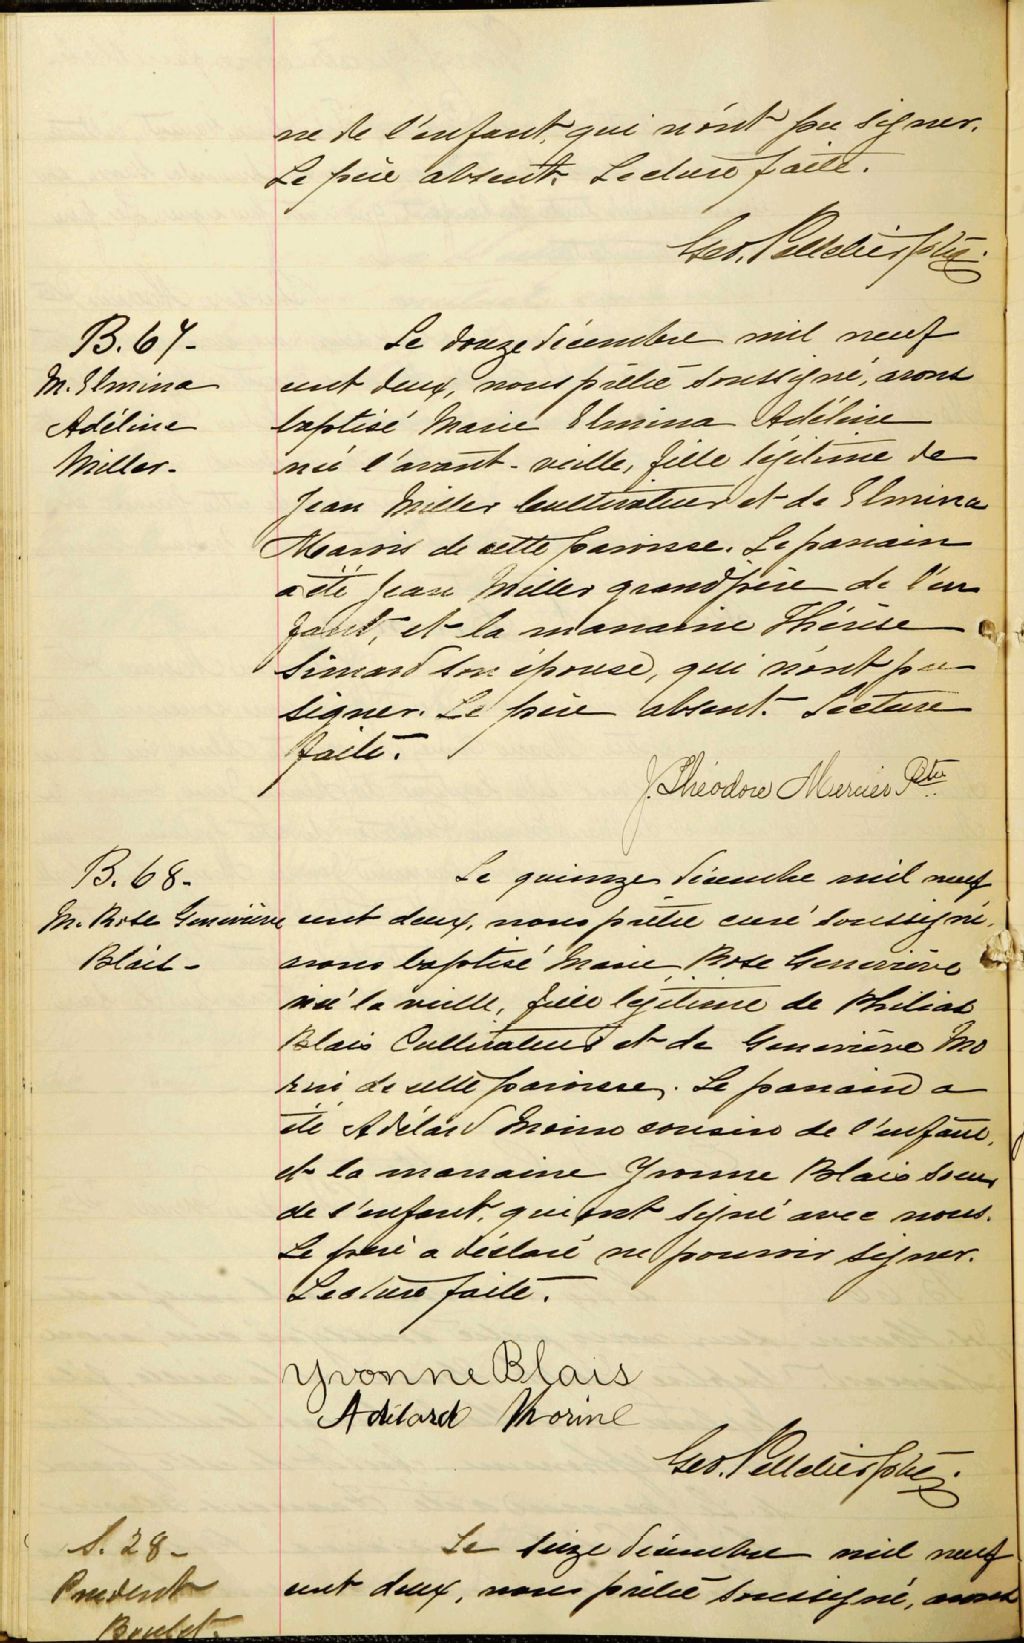 ne de l'enfant, qui n'ont pu signer.
Le père absent. Lecture faite.
Geo. Pelletier ptre.
B. 67-
M. Elmina
Adéline
Miller-
Le douze décembre mil neuf
cent deux, nous prêtre soussigné, avons
baptisé Marie Elmina Adéline
née l'avant-veille, fille légitime de
Jean Miller Cultivateur et de Elmina
Marois de cette paroisse. Le parrain
a été Jean Miller grand père de l'en
fant, et la marraine Thérèse
Simard son épouse, qui n'ont pu
signer. Le père absent. Lecture
faite.
J. Théodore Mercier Ptre
B. 68-
M. Rose Geneviève
Blais-
Le quinze décembre mil neuf
cent deux, nous prêtre curé soussigné,
avons baptisé Marie Rose Geneviève
née la veille, fille légitime de Philias
Blais Cultivateur et de Geneviève Mo
rin de cette paroisse. Le parrain a
été Adélard Morin cousin de l'enfant,
et la marraine Yvonne Blais soeur
de l'enfant, qui ont signé avec nous.
Le père a déclaré ne pouvoir signer.
Lecture faite.
Yvonne Blais
Adélard Morine
Geo. Pelletier ptre.
S. 28-
Prudent
Boulet.
Le seize décembre mil neuf
cent deux, nous prêtre soussigné, avons